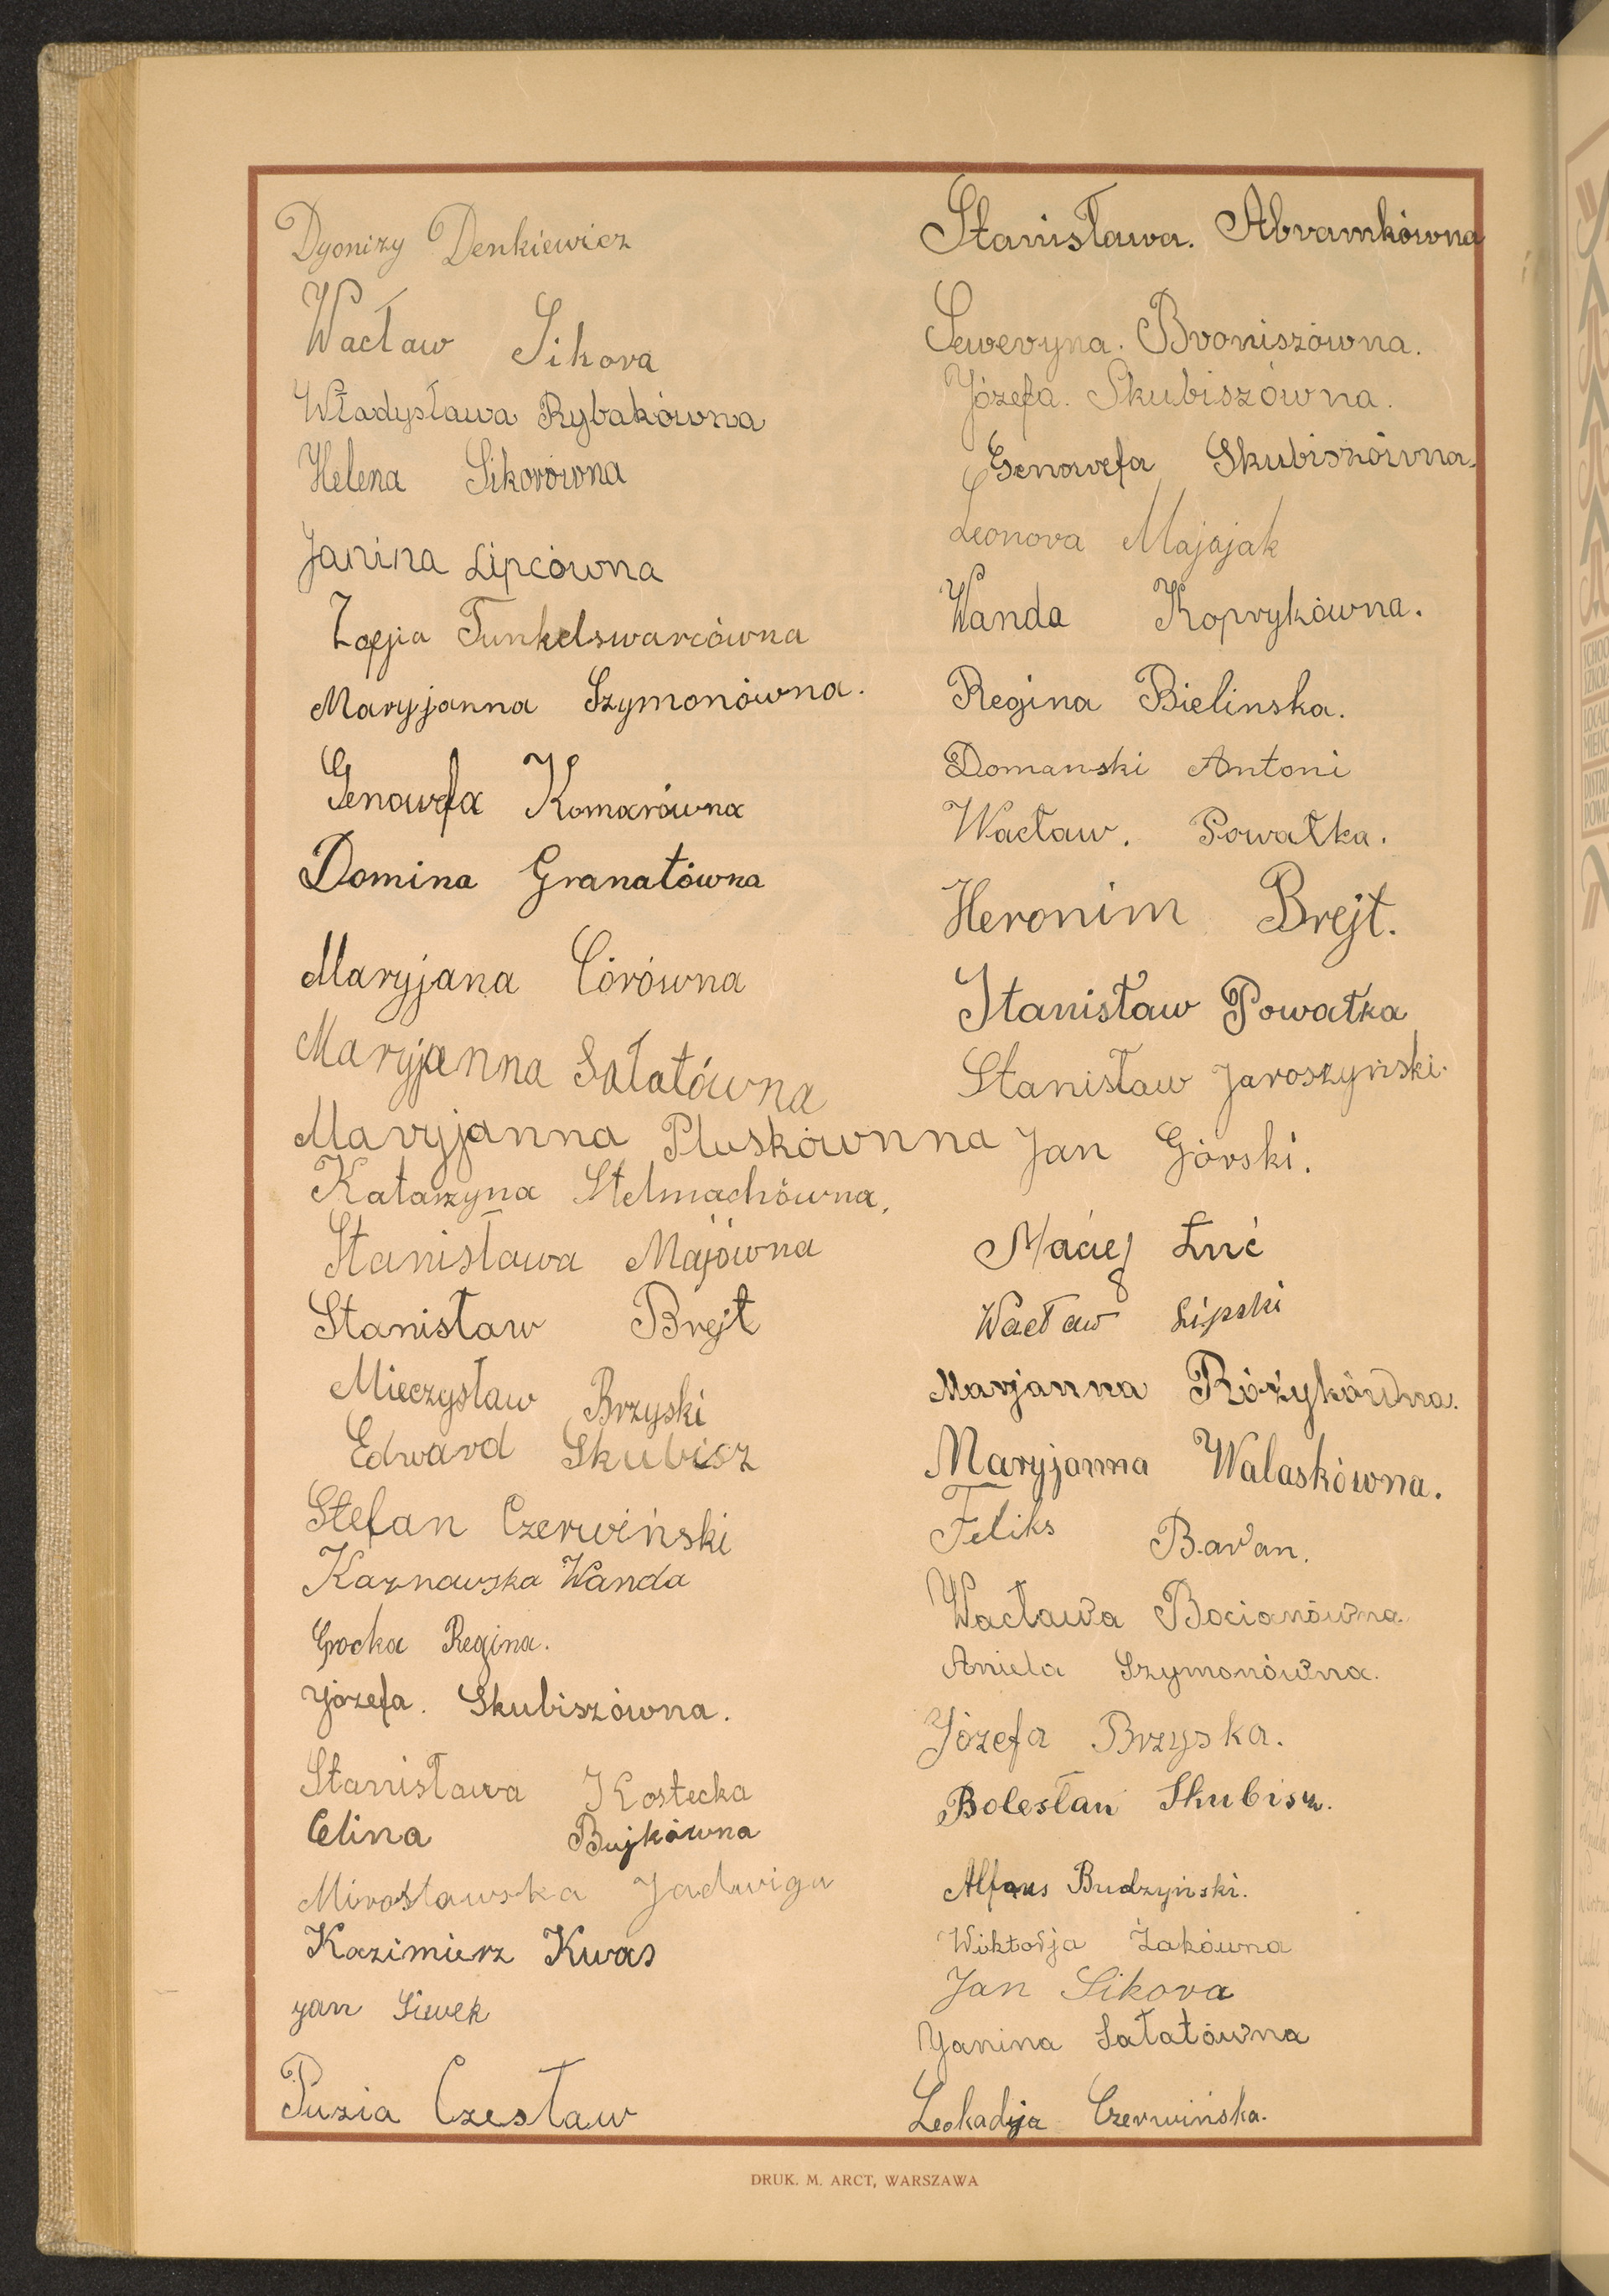 Dyonizy Denkiewicz
Wacław Sikora
Władysława Rybakówna
Helena Sikorówna
Janina Lipcówna
Zofja Funkelswarcówna
Maryjanna Szymonówna.
Genowefa Komarówna
Domina Granatówna
Maryjana Córówna
Maryjanna Sałatówna
Maryjanna Pluskównna
Katarzyna Stelmachówna,
Stanisława Majówna
Stanisław Brejt
Mieczysław Brzyski
Edward Skubisz
Stefan Czerwiński
Karnowska Wanda
Grocka Regina.
Józefa. Skubiszówna.
Stanisława Kostecka
Celina Bujkówna
Mirosławska Jadwiga
Kazimierz Kwas
Jan Siwek
Puzia Czesław
Stanisława. Abramkówna
Seweryna. Broniszówna.
Józefa. Skubiszówna.
Genowefa Skubiszówna.
Leonora Majajak
Wanda Koprykówna.
Regina Bielinska.
Domanski Antoni
Wacław. Powałka.
Heronim Brejt.
Stanisław Powałka
Stanisław Jaroszyński.
Jan Górski.
Maciej Łuć
Wacław Lipski
Marjanna Różykówna.
Maryjanna Walaskówna.
Feliks Baran.
Wacława Bocianówna.
Aniela Szymonówna.
Józefa Brzyska.
Bolesłau Skubisz.
Alfons Budzyński.
Wiktorja Żakówna
Jan Sikora
Janina Sałatówna
Leokadyja Czerwińska.
DRUK. M. ARCT, WARSZAWA